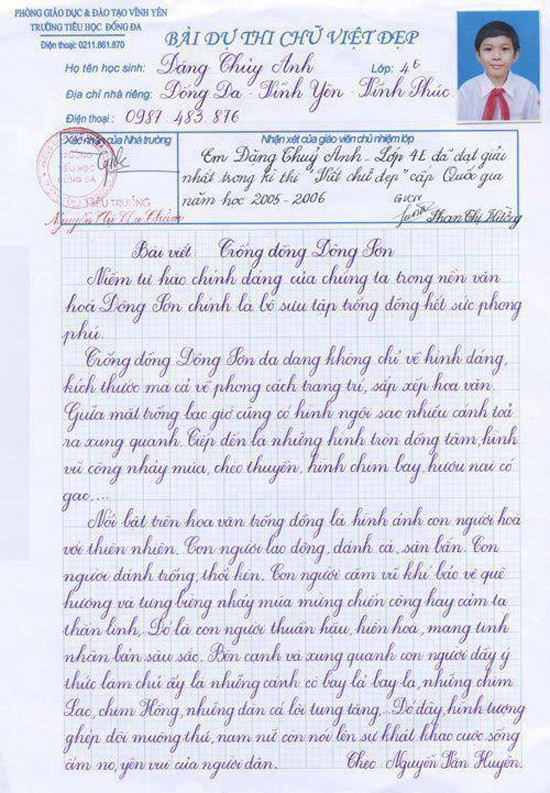 PHÒNG GIÁO DỤC & ĐÀO TẠO VĨNH YÊN
TRƯỜNG TIỂU HỌC ĐỐNG ĐA
Điện thoại: 0211.861.870
BÀI DỰ THI CHỮ VIỆT ĐẸP
Họ tên học sinh: Đặng Thùy Anh Lớp: 4E
Địa chỉ nhà riêng: Đống Đa - Vĩnh Yên - Vĩnh Phúc.
Điện thoại: 0987 483 876
Xác nhận của Nhà trường
Nhận xét của giáo viên chủ nhiệm lớp
Em Đặng Thuỳ Anh - Lớp 4E đã đạt giải
nhất trong kì thi "Viết chữ đẹp" cấp Quốc gia
năm học 2005 - 2006
GVCN
TRƯỜNG
TIỂU HỌC
ĐỐNG ĐA
HIỆU TRƯỞNG
Nguyễn Thị Thu Thắm
Phan Thị Hường
Bài viết: Trống đồng Đông Sơn
Niềm tự hào chính đáng của chúng ta trong nền văn
hoá Đông Sơn chính là bộ sưu tập trống đồng hết sức phong
phú.
Trống đồng Đông Sơn đa dạng không chỉ về hình dáng,
kích thước mà cả về phong cách trang trí, sắp xếp hoa văn.
Giữa mặt trống bao giờ cũng có hình ngôi sao nhiều cánh toả
ra xung quanh. Tiếp đến là những hình tròn đồng tâm, hình
vũ công nhảy múa, chèo thuyền, hình chim bay, hươu nai có
gạc....
Nổi bật trên hoa văn trống đồng là hình ảnh con người hoà
với thiên nhiên. Con người lao động, đánh cá, săn bắn. Con
người đánh trống, thổi kèn. Con người cầm vũ khí bảo vệ quê
hương và tưng bừng nhảy múa mừng chiến công hay cảm tạ
thần linh, Đó là con người thuần hậu, hiền hoà, mang tính
nhân bản sâu sắc. Bên cạnh và xung quanh con người đầy ý
thức làm chủ ấy là những cánh cò bay lả bay la, những chim
Lạc, chim Hồng, những đàn cá lội tung tăng, Đó đây, hình tượng
ghép đôi muông thú, nam nữ còn nói lên sự khát khao cuộc sống
ấm no, yên vui của người dân. Theo: Nguyễn Văn Huyên.